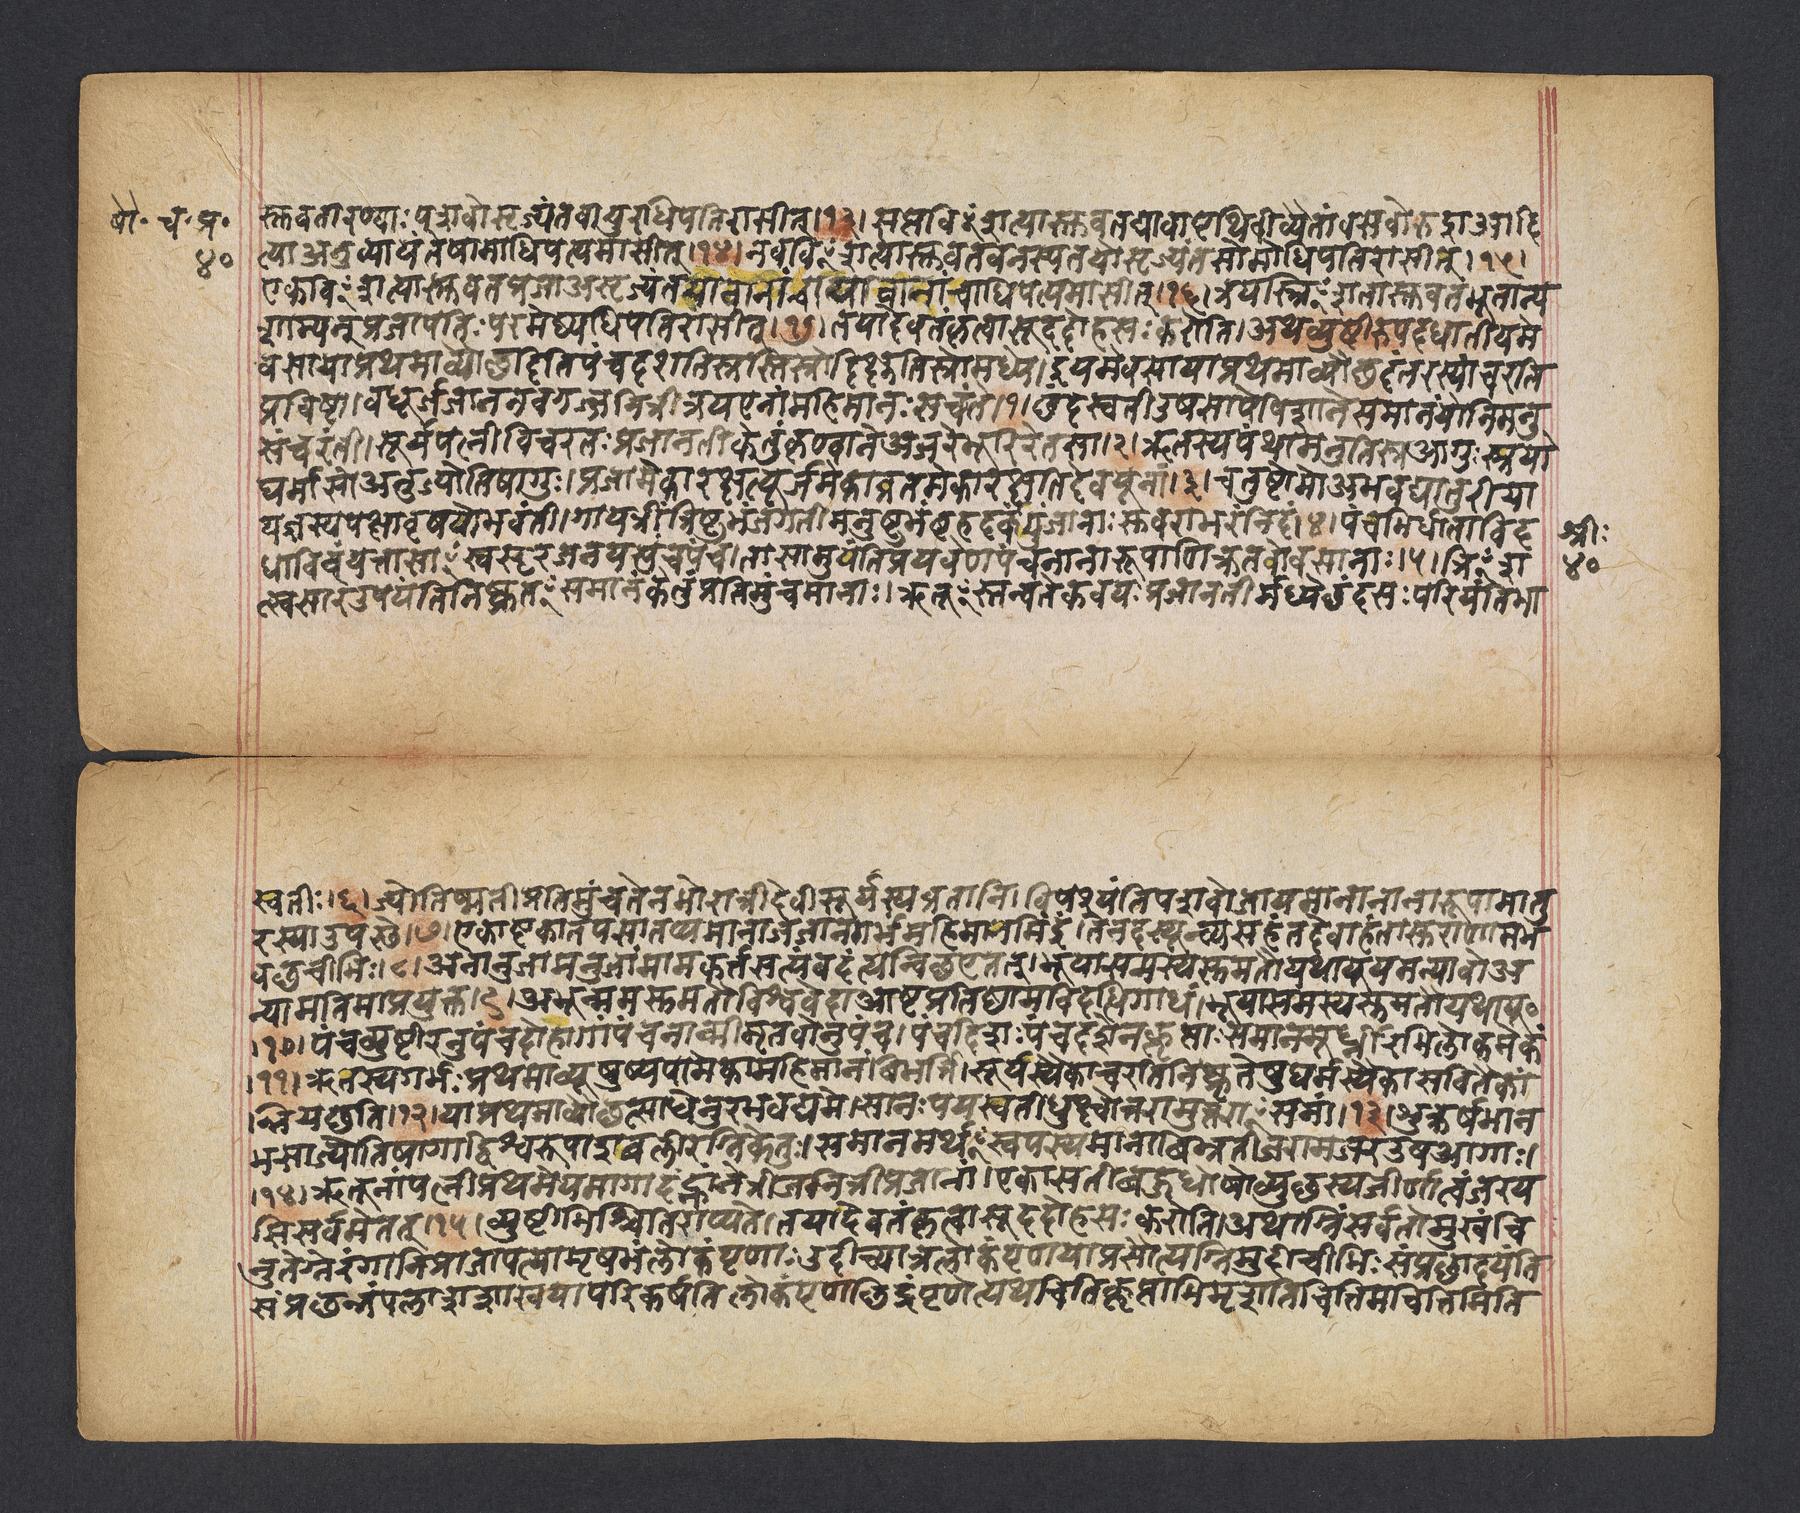 बौ॰ च॰ प्र॰
४०
स्तुवतारण्याः पशवोसृज्यंतवायुरधिपतिरासीत्।१३। सप्तविꣳशत्यास्तुवतद्यावापृथिवीव्यैतांवसवोरुद्राआदि
त्याअनुव्यायंतेषामाधिपत्यमासीत्।१४। नवविꣳशत्यास्तुवतवनस्पतयोसृज्यंतसोमोधिपतिरासीत्।१५।
एकत्रिꣳशत्यास्तुवतप्रजाअसृज्यंतयावानांचायावानांचाधिपत्यमासीत्।१६। त्रयस्त्रिꣳशतास्तुवतभूतान्य
शाम्यन्प्रजापतिः परमेष्ठ्यधिपतिरासीत्।१७। तयादेवतंकृत्वासूददोहसः करोति। अथव्युष्टीरुपदधातीयमे
वसायाप्रथमाव्यौछदितिपंचदशतिस्रस्तिस्रोदिक्षुतिस्रोमध्ये। इयमेवसायाप्रथमाव्यौछदंतरस्यांचरति
प्रविष्टा। वधूर्जजाननवगज्जनित्रीत्रयएनांमहिमानः सचंते।१। छंदस्वतीउषसापेपिशानेसमानंयोनिमनु
संचरंती। सूर्यपत्नीविचरतः प्रजानतीकेतुंकृण्वानेअजरेभूरिरेतसा।२। ऋतस्यपंथामनुतिस्रआगुः स्त्रयो
घर्मासोअनुज्योतिषागुः। प्रजामेकारक्षत्यूर्जमेकाव्रतमेकारक्षतिदेवयूनां।३। चतुष्टोमोअभवद्यातुरीया
यज्ञस्यपक्षावृषयोभवंती। गायत्रींत्रिष्टुभंजगतीमनुष्टुभंबृहदर्कंयुंजानाः स्तवराभरंन्निदं।४। पंचभिर्धाताविद
धाविदंयत्तासाꣳस्वसॄरजनयत्पंचपंच। तासामुयंतिप्रयवेणपंचनानारूपाणिक्रतवोवसानाः।५। त्रिꣳश
त्स्वसारउपयंतिनिष्कृतꣳसमानंकेतुंप्रतिमुंचमानाः। ऋतूꣳस्तन्वतेकवयः प्रजानतीर्मध्येछंदसः परियंतिभा
श्रीः
४०
स्वतीः।६। ज्योतिष्मतीप्रतिमुंचतेनभोरात्रीदेवीसूर्यस्यव्रतानि। विपश्यंतिपशवोजायमानानानारूपामातु
रस्याउपस्थे।७। एकाष्टकातपसातप्यमानाजजानगर्भंमहिमानमिंद्रं। तेनदस्यून्व्यसहंतदेवाहंतासुराणामभ
वछचीभिः।८। अनानुजामनुजांमामकर्तसत्यंवदंत्यन्विछएतत्। भूयासमस्यसुमतौयथायूयमन्यावोअ
न्यामतिमाप्रयुक्त।९। अभून्ममसुमतौविश्ववेदाआष्टप्रतिष्ठामविदद्धिगाधं। भूयासमस्यसुमतौयथायू॰
।१०। पंचव्युष्टीरनुपंचदोहागांपंचनाम्नीमृतवोनुपंच। पंचदिशः पंचदशेनकॢप्ताः समानमूर्ध्नीरभिलोकमेकं
।११। ऋतस्यगर्भः प्रथमाव्यूषुष्यपामेकामहिमानंबिभर्ति। सूर्यस्यैकाचरतिनिष्कृतेषुघर्मस्यैकासवितैकां
नियछति।१२। याप्रथमाव्यौछत्साधेनुरभवद्यमे। सानः पयस्वतीधुक्ष्वोत्तरामुत्तराꣳसमां।१३। शुक्रर्षभान
भसाज्योतिषागाद्विश्वरूपाशबलीरग्निकेतुः। समानमर्थꣳस्वपस्यमानाबिभ्रतीजरामजरउषआगाः।
।१४। ऋतूनांपत्नीप्रथमेयमागादंह्नांनेत्रीजनित्रीप्रजानां। एकासतीबहुधोषोव्युछस्यजीर्णात्वंजरय
सिसर्वमेतत्।१५। व्युष्टीभिश्चितिराप्यते। तयादेवतंकृत्वासूददोहसः करोति। अथाग्निंसर्वतोमुखंचि
नुतेग्नेरंगानिप्राजापत्यामृषभंलोकंपृणाः उदीच्यानलोकंपृणयाप्रसौत्यग्निमुदीचीभिः संप्रछादयंति
संप्रछन्नंपलाशशाखयापरिकर्षतिलोकंपृणछिद्रंपृणेत्यथचितिकॢप्ताभिमृशतिचित्तिमचित्तिमिति